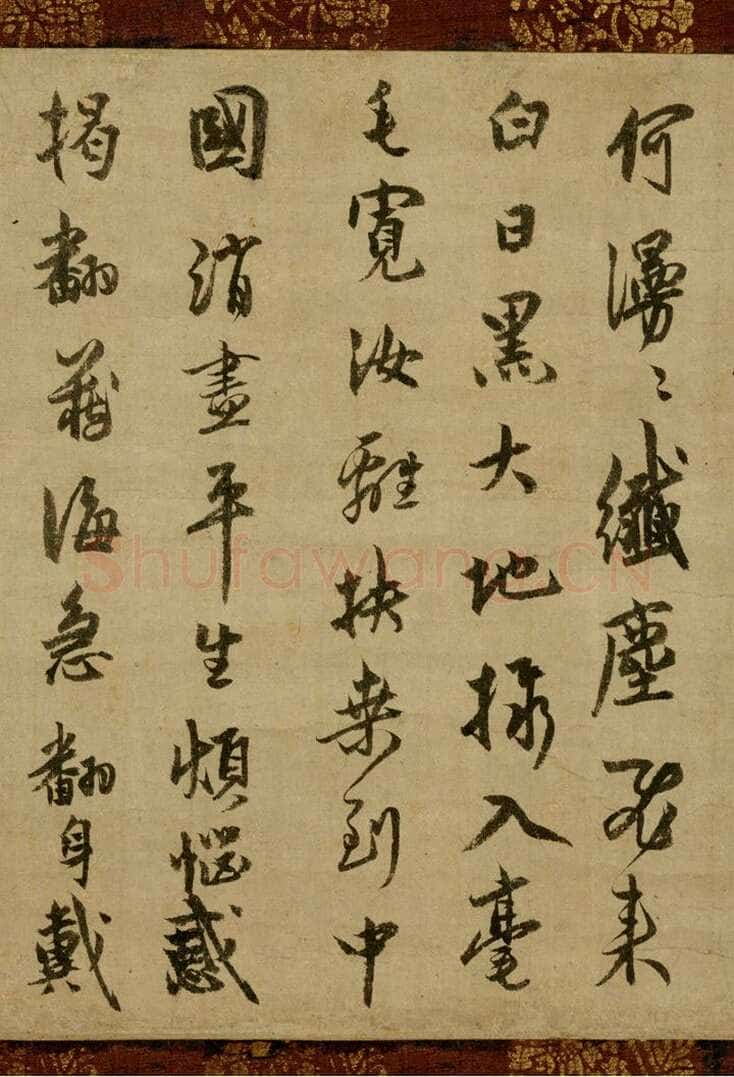 何漫〻纖塵飛來
白日黑大地入毫
毛寬汝離扶桒到中
國消盡平生煩惱惑
揭翻藏海急翻身戴
Shufawang.CN